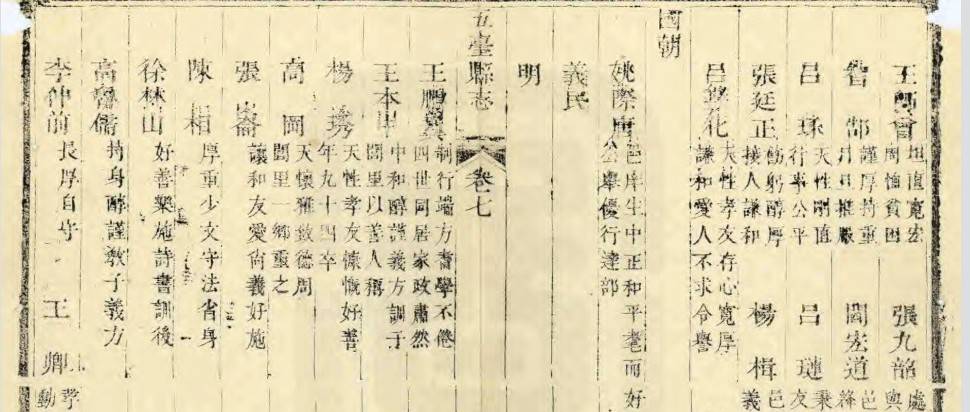 王會 坦直寬宏
周恤貧困
張九韶 處
與
智 謹厚持重
月旦推嚴
閻宏道 邑
呂 天性剛直
行事公平
呂璉 秉
友
張廷正 飭躬醇厚
接人謙和
楊楫 邑
義
呂化 天性孝友存心寬厚
謙和愛人不求令譽
國朝
姚際唐 邑庠生中正和平耄而好
公舉優行達部
義民
明
五臺縣志 卷七
王鵬翼 制行端方耆學不倦
四世同居家政肅然
王本中 中和醇謹義方訓子
閭里以善人稱
楊琇 天性孝友慷慨好善
年九十四卒
高岡 天懷雅飭德周
閭里一鄉重之
張崙 謙和友愛尚義好施
陳相 厚重少文守法省身
徐林山 好善樂施詩書訓後
高魯儒 持身醇謹敎子義方
李仲前 長厚自守
王卿 孝
勤